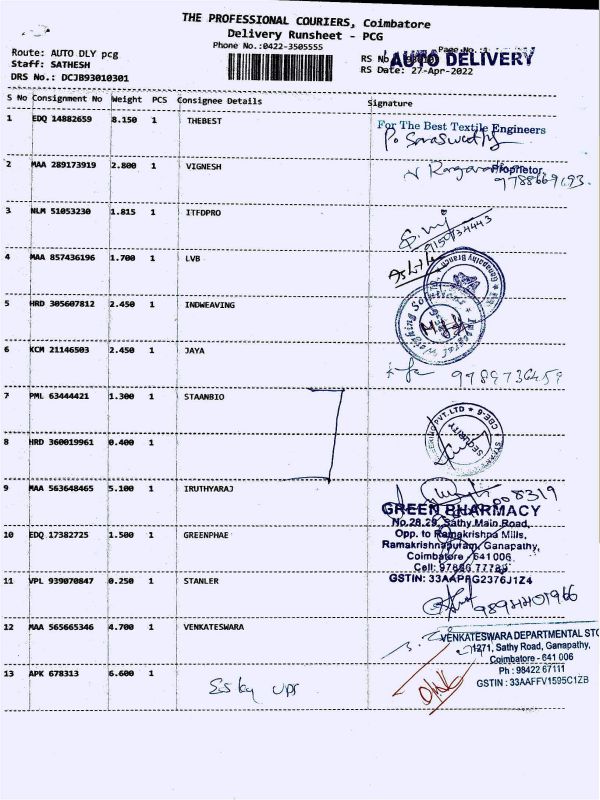 THE PROFESSIONAL COURIERS, Coimbatore
Delivery Runsheet - PCG
Phone No.:0422-3505555
Page No.:1
Route: AUTO DLY pcg
RS No
AUTO DELIVERY
Staff: SATHESH
RS Date: 27-Apr-2022
DRS No.: DCJB93010301
S No Consignment No Weight PCS Consignee Details Signature
1 EDQ 14882659 8.150 1 THEBEST
For The Best Textile Engineers
Proprietor
2 MAA 289173919 2.800 1 VIGNESH
3 NLM 51053230 1.815 1 ITFDPRO
4 MAA 857436196 1.700 1 LVB
Ganapathy Branch
5 HRD 305607812 2.450 1 INDWEAVING
6 KCM 21146503 2.450 1 JAYA
9789736459
7 PML 63444421 1.300 1 STAANBIO
PVT.LTD ★ CBE-6
SECURITY
8 HRD 360019961 0.400 1
9 MAA 563648465 5.100 1 IRUTHYARAJ
GREEN PHARMACY
No.28,29, Sathy Main Road,
Opp. to Ramakrishna Mills,
Ramakrishnapuram, Ganapathy,
Coimbatore - 641 006.
10 EDQ 17382725 1.500 1 GREENPHAE
GSTIN: 33AAPFG2376J1Z4
11 VPL 939070847 0.250 1 STANLER
12 MAA 565665346 4.700 1 VENKATESWARA
VENKATESWARA DEPARTMENTAL STO
1271, Sathy Road, Ganapathy,
Coimbatore - 641 006
Ph : 98422 67111
GSTIN : 33AAFFV1595C1ZB
13 APK 678313 6.600 1